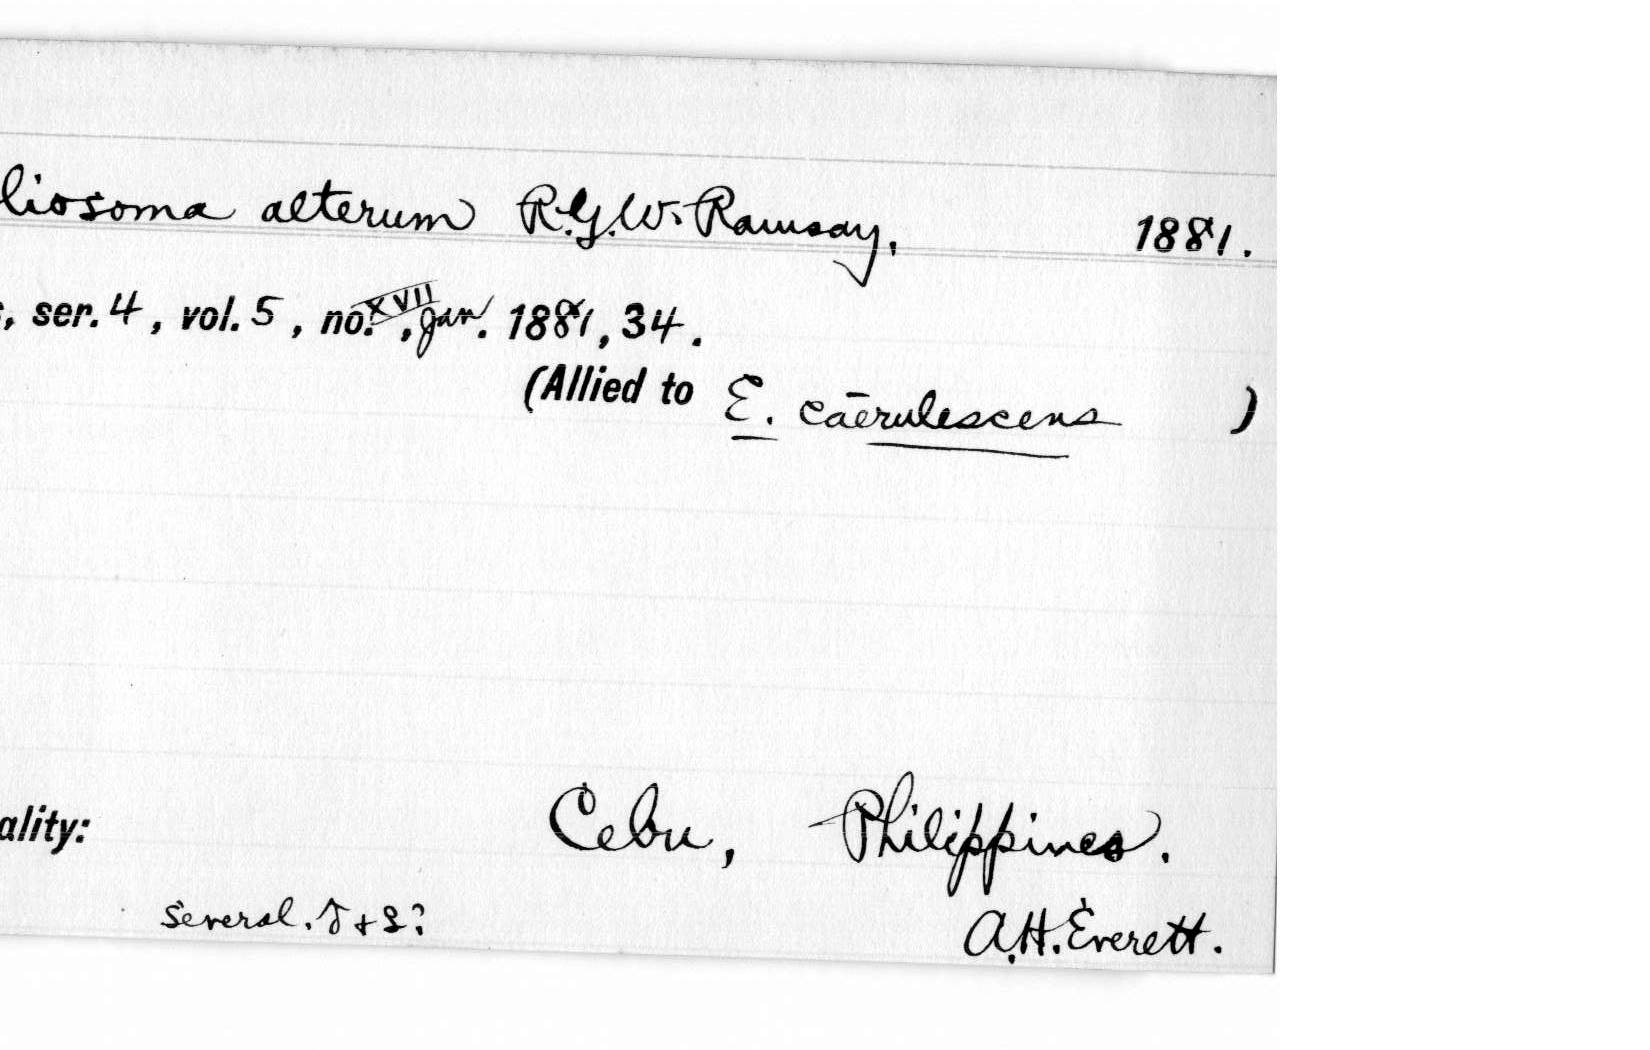 liosoma alterum R.G.W. Ramsay, 1881.
s, ser. 4, vol. 5, no. XVII, Jan. 1881, 34.
(Allied to E. caerulescens )
ality: Cebu, Philippines.
Several. ♂ + ♀? A.H. Everett.